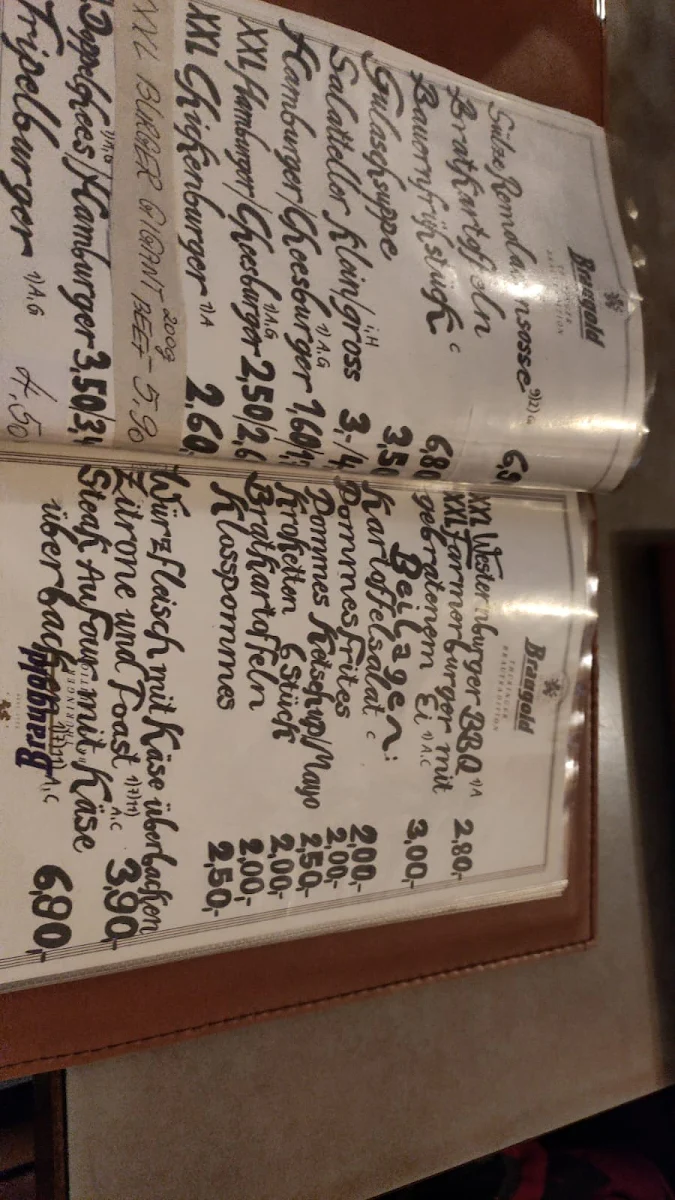 Braugold
THÜRINGER
BRAUTRADITION
Sülze Remoladensosse 9)2)G
Bratkartoffeln 6,9
Bauernfrühstück C 6,80
Gulaschsuppe 3,50
Salatteller klein/gross i,H 3,-/4,
Hamburger/Cheesburger 1)A,G 1,60/1,
XXL Hamburger/Cheesburger 1)A,G 2,50/2,6
XXL Chickenburger 1)A 2,60
XXL BURGER GIGANT BEEF 200g - 5.90
Doppelchees/Hamburger 3,50/3,
Tripelburger 1)A,G 4,50
Braugold
THÜRINGER
BRAUTRADITION
XXL Westernburger BBQ 1)A 2,80,-
XXL Farmerburger mit
gebratenem Ei 1)A,C 3,00,-
Beilagen:
Kartoffelsalat C 2,00,-
Pommes Frites 2,00,-
Pommes Ketschup/Mayo 2,50,-
Kroketten 6 Stück 2,00,-
Bratkartoffeln 2,00,-
Klosspommes 2,50,-
Würzfleisch mit Käse überbacken
Zitrone und Toast 1)7)11) A,C 3,90,-
Steak Au Four mit Käse
überbacken 1)7)11) A,C 6,80,-